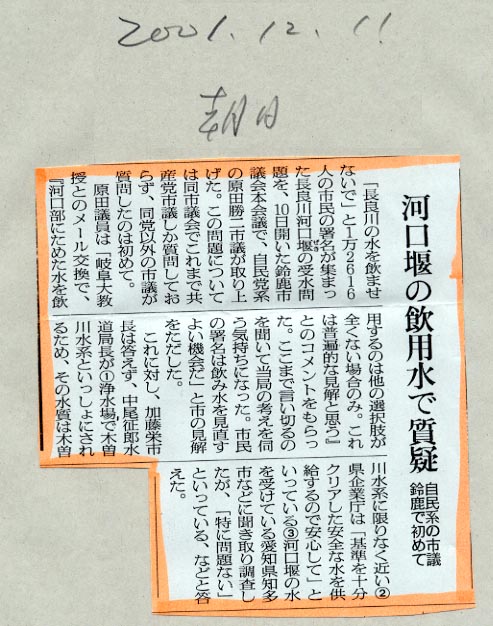 2001.12.11
朝日
河口堰の飲用水で質疑
自民系の市議
鈴鹿で初めて
「長良川の水を飲ませ
ないで」と1万2616
人の市民の署名が集まっ
た長良川河口堰の受水問
題を、10日開いた鈴鹿市
議会本会議で、自民党系
の原田勝二市議が取り上
げた。この問題について
は同市議会でこれまで共
産党市議しか質問してお
らず、同党以外の市議が
質問したのは初めて。
原田議員は「岐阜大教
授とのメール交換で、
『河口部にためた水を飲
用するのは他の選択肢が
全くない場合のみ。これ
は普遍的な見解と思う』
とのコメントをもらっ
た。ここまで言い切るの
を聞いて当局の考えを伺
う気持ちになった。市民
の署名は飲み水を見直す
よい機会だ」と市の見解
をただした。
これに対し、加藤栄市
長は答えず、中尾征郎水
道局長が①浄水場で木曽
川水系といっしょにされ
るため、その水質は木曽
川水系に限りなく近い②
県企業庁は「基準を十分
クリアした安全な水を供
給するので安心して」と
いっている③河口堰の水
を受けている愛知県知多
市などに聞き取り調査し
たが、「特に問題ない」
といっている、などと答
えた。